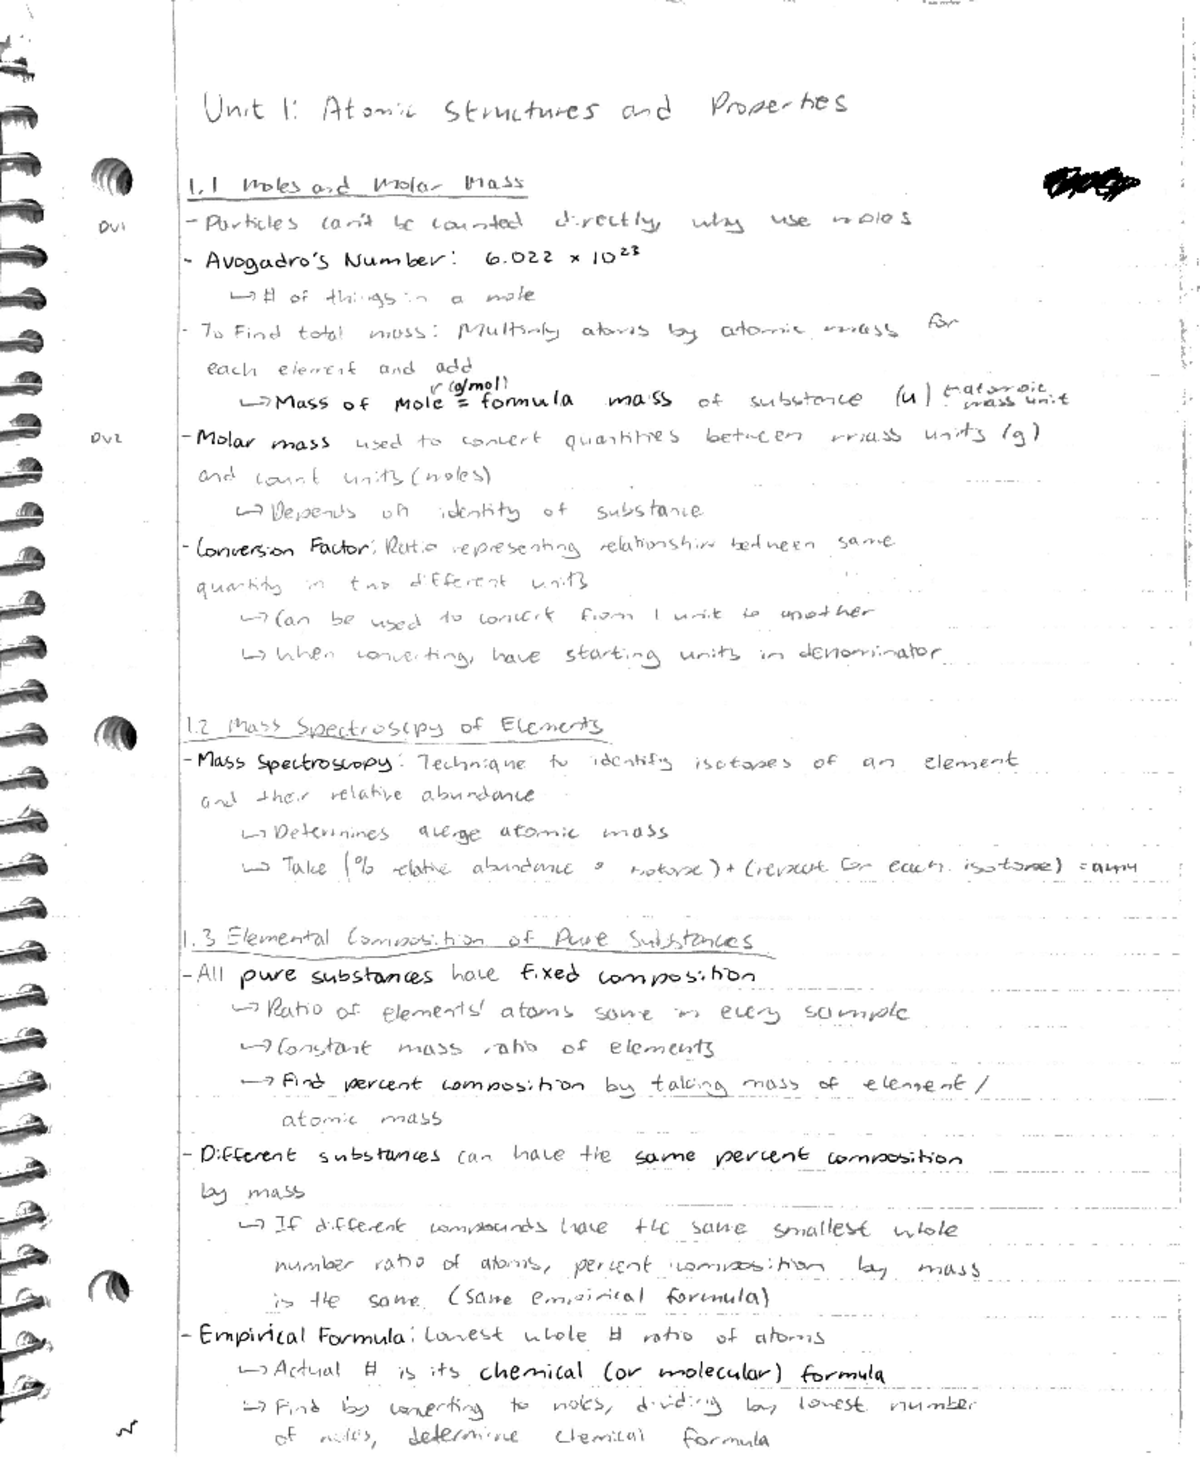 Unit 1: Atomic Structures and Properties
1.1 Moles and Molar Mass
DV1
- Particles can't be counted directly, why use moles
- Avogadro's Number: 6.022 × 10²³
↳ # of things in a mole
- To Find total mass: Multiply atoms by atomic mass for
each element and add
(g/mol)
↳ Mass of Mole = formula mass of substance (u) ← atomic mass unit
DV2
- Molar mass used to convert quantities between mass units (g)
and count units (moles)
↳ Depends on identity of substance
- Conversion Factor: Ratio representing relationship between same
quantity in two different units
↳ Can be used to convert from 1 unit to another
↳ When converting, have starting units in denominator
1.2 Mass Spectroscopy of Elements
- Mass Spectroscopy: Technique to identify isotopes of an element
and their relative abundance
↳ Determines averge atomic mass
↳ Take (% relative abundance • isotope) + (repeat for each isotope) = amu
1.3 Elemental Composition of Pure Substances
- All pure substances have fixed composition
↳ Ratio of elements' atoms same in every sample
↳ Constant mass ratio of elements
↳ Find percent composition by taking mass of element /
atomic mass
- Different substances can have the same percent composition
by mass
↳ If different compounds have the same smallest whole
number ratio of atoms, percent composition by mass
is the same (same empirical formula)
- Empirical Formula: lowest whole # ratio of atoms
↳ Actual # is its chemical (or molecular) formula
↳ Find by converting to moles, dividing by lowest number
of moles, determine chemical formula